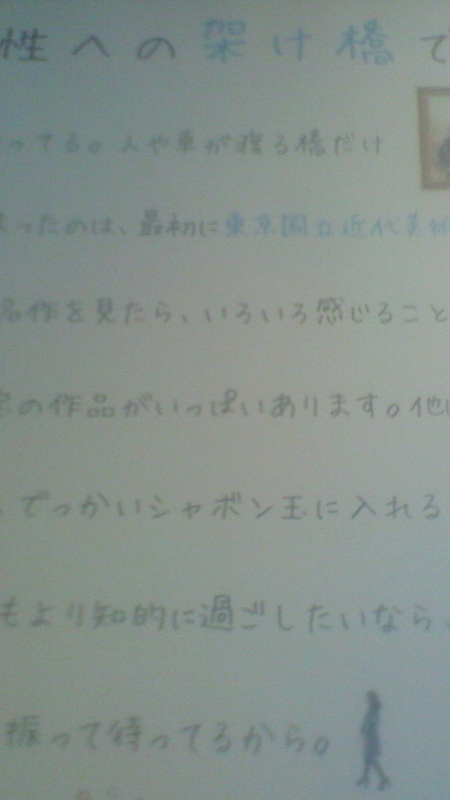 性への架け橋で
ってる。人や車が渡る橋だけ
まったのは、最初に東京国立近代美術
名作を見たら、いろいろ感じること
家の作品がいっぱいあります。他に
。でっかいシャボン玉に入れる
もより知的に過ごしたいなら、
振って待ってるから。